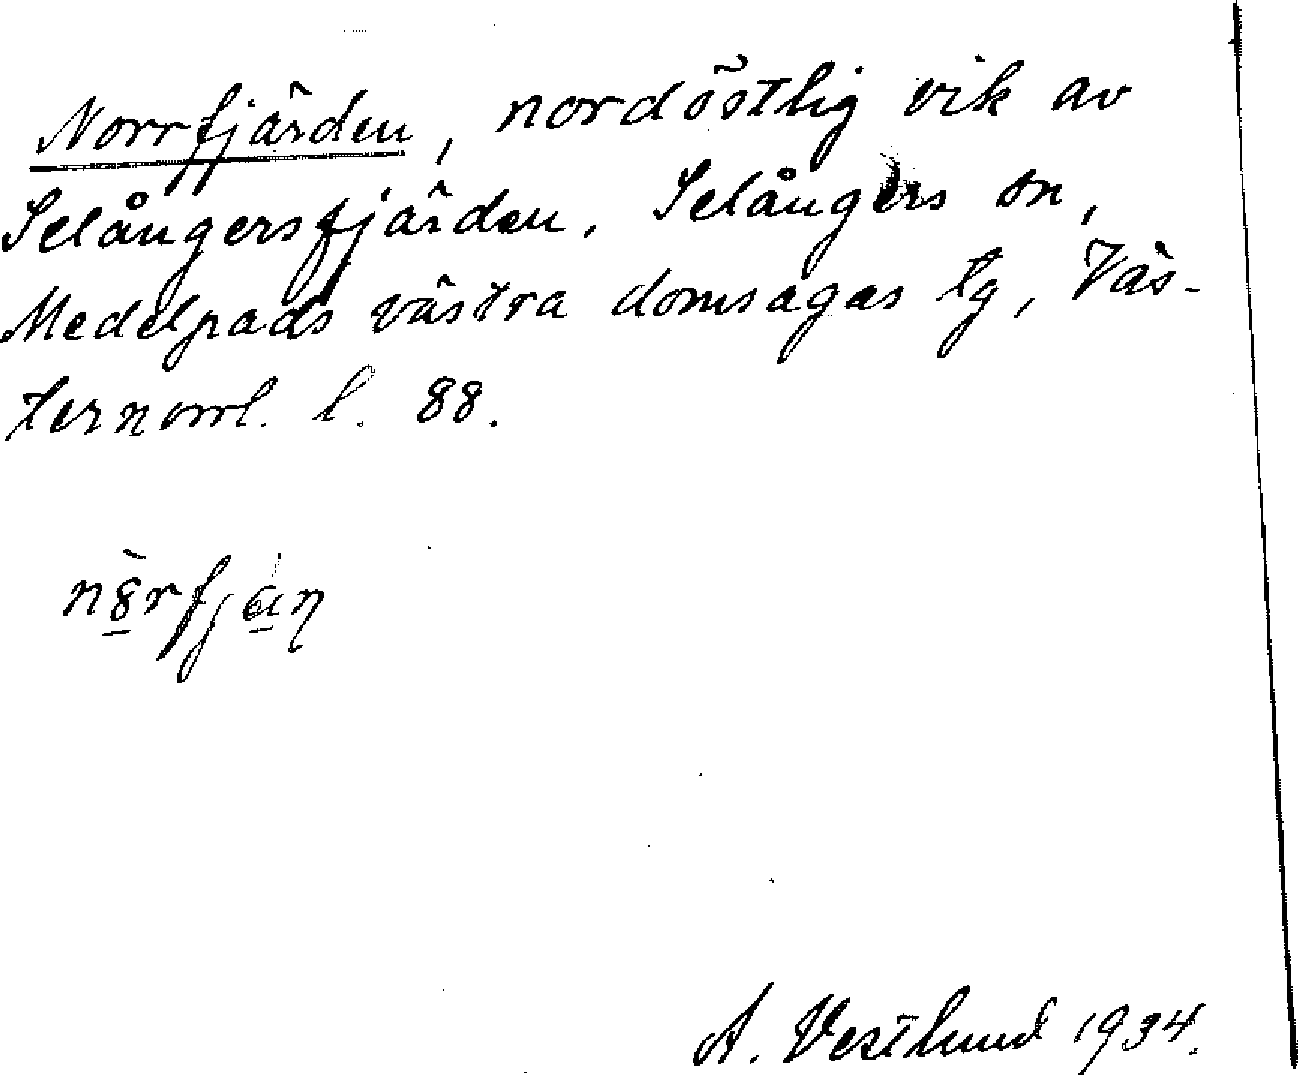 Norrfjärden, nordöstlig vik av
Selångersfjärden. Selångers sn,
Medelpads västra domsagas tg, Väs-
ternorrl. l. 88.
A. Vestlund 1934.